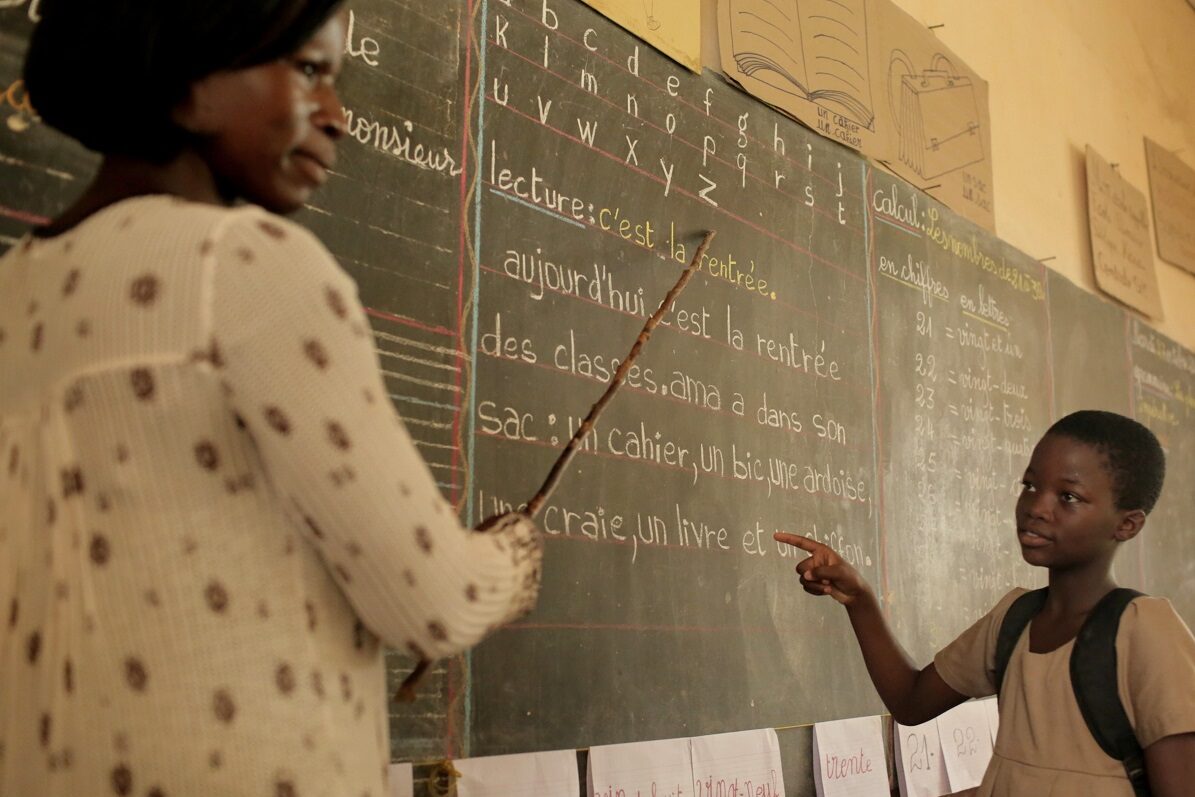 le
monsieur
b c d e f g h i j
k l m n o p q r s t
u v w x y z
lecture: c'est la rentrée.
aujourd'hui c'est la rentrée
des classes. ama a dans son
sac: un cahier, un bic, une ardoise,
une craie, un livre et un chiffon.
un cahier
un cahier
un sac
un sac
calcul: Les nombres de 21 à
en chiffres en lettres
21 = vingt et un
22 = vingt-deux
23 = vingt-trois
24 = vingt-
25 = vingt-
26 = vingt-
vingt-neuf
trente
21.
22.